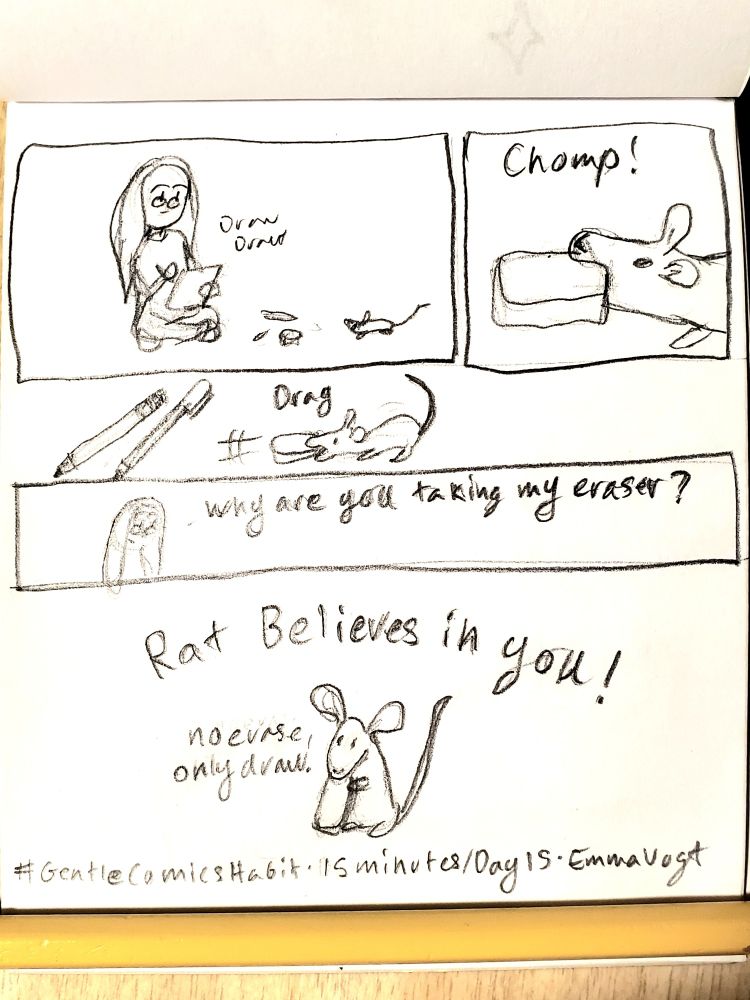 Draw
Draw
Chomp!
Drag
#
why are you taking my eraser?
Rat Believes in you!
no erase,
only draw.
#GentleComicsHabit · 15 minutes/Day 15 · Emma Vogt